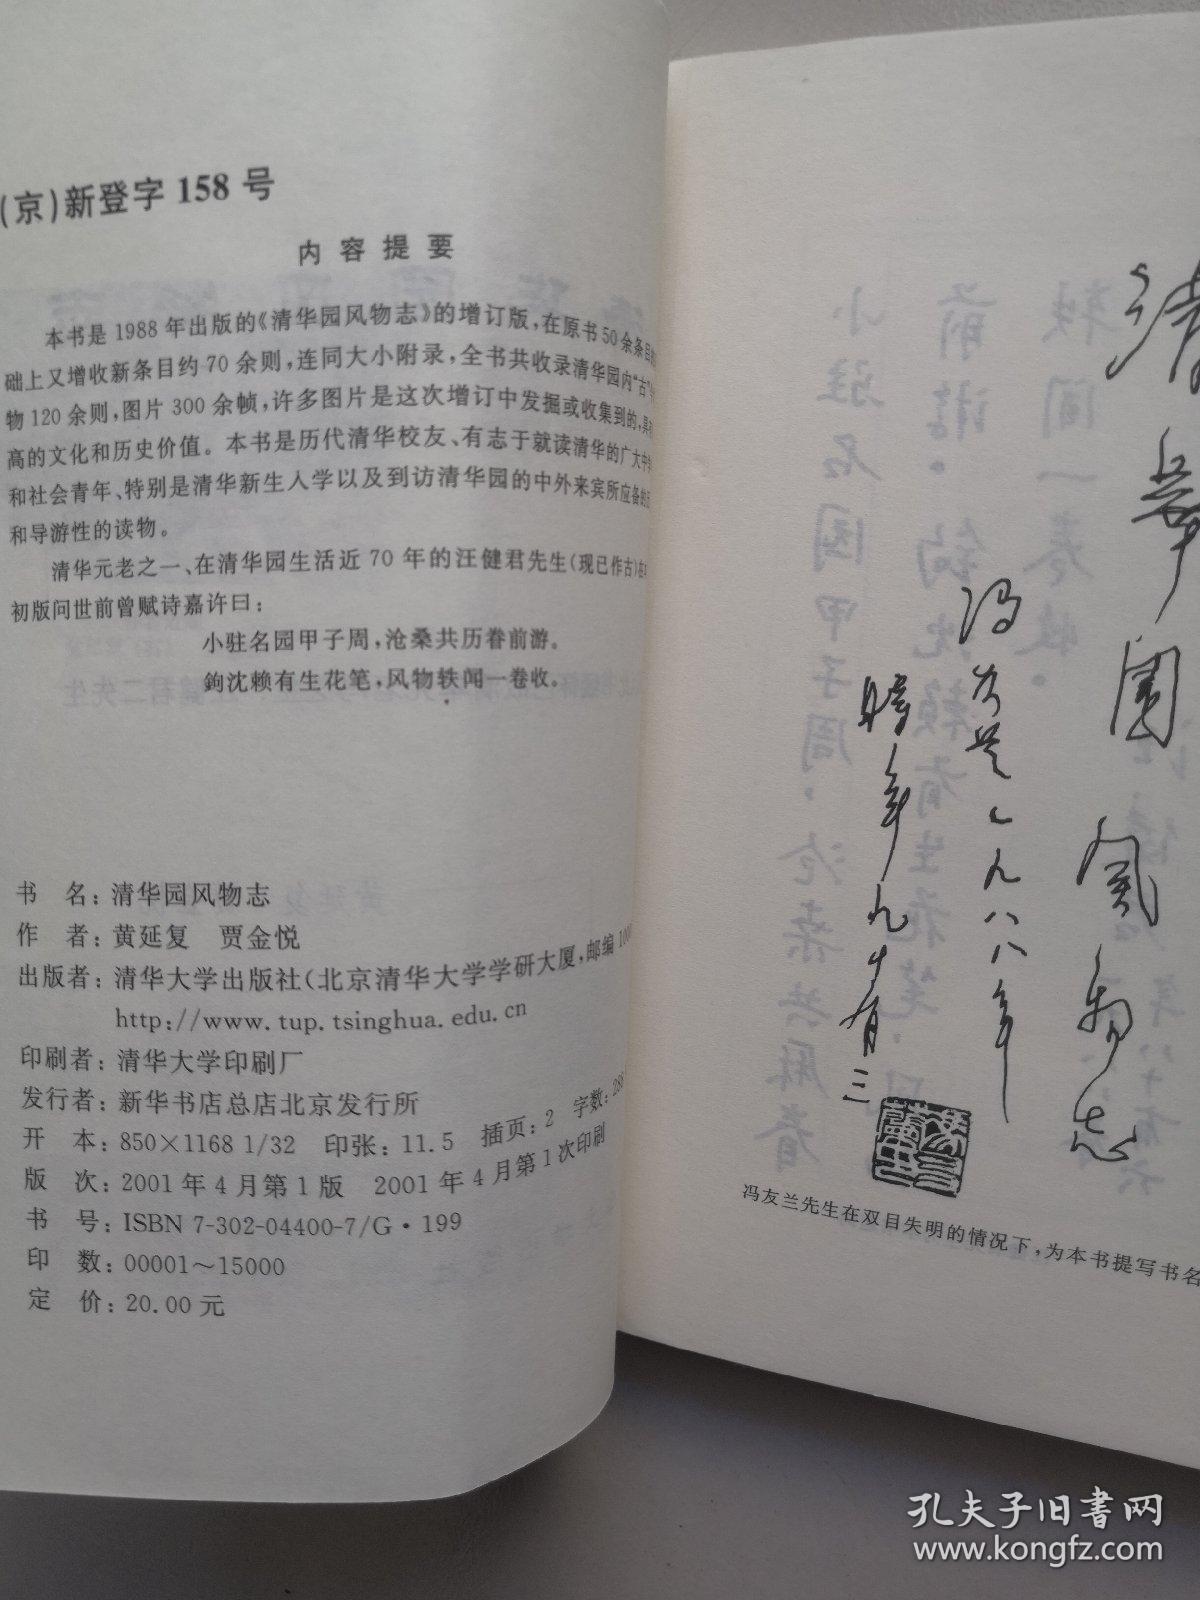 (京)新登字 158 号
内 容 提 要
本书是 1988 年出版的《清华园风物志》的增订版，在原书 50 余条目
础上又增收新条目约 70 余则，连同大小附录，全书共收录清华园内“古”
物 120 余则，图片 300 余帧，许多图片是这次增订中发掘或收集到的，具
高的文化和历史价值。本书是历代清华校友、有志于就读清华的广大中
和社会青年、特别是清华新生入学以及到访清华园的中外来宾所应备的
和导游性的读物。
清华元老之一、在清华园生活近 70 年的汪健君先生(现已作古)在
初版问世前曾赋诗嘉许曰：
小驻名园甲子周，沧桑共历眷前游。
鉤沈赖有生花笔，风物轶闻一卷收。
书　名：清华园风物志
作　者：黄延复　贾金悦
出版者：清华大学出版社(北京清华大学学研大厦，邮编 100
http://www.tup.tsinghua.edu.cn
印刷者：清华大学印刷厂
发行者：新华书店总店北京发行所
开　本：850×1168 1/32　印张：11.5　插页：2　字数：28
版　次：2001 年 4 月第 1 版　2001 年 4 月第 1 次印刷
书　号：ISBN 7-302-04400-7/G·199
印　数：00001～15000
定　价：20.00 元
清华园风物志
冯友兰一九八八年
时年九十有三
冯友兰先生在双目失明的情况下，为本书提写书名
孔夫子旧书网
www.kongfz.com